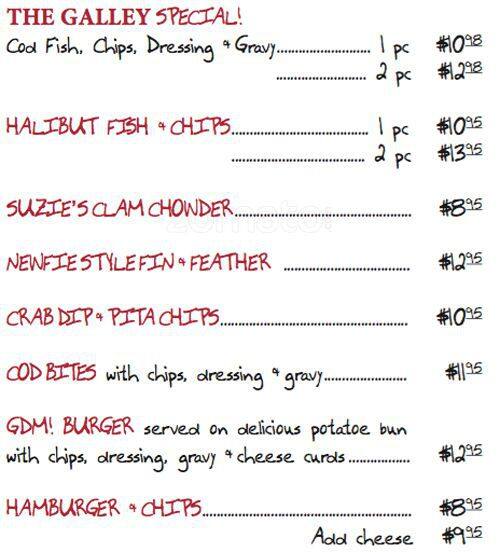 THE GALLEY SPECIAL!
Cod Fish, Chips, Dressing & Gravy........................ 1 pc $10.98
........................ 2 pc $12.98
HALIBUT FISH & CHIPS.................................... 1 pc $10.95
.................................... 2 pc $13.95
SUZIE'S CLAM CHOWDER.............................................. $8.95
NEWFIE STYLE FIN & FEATHER ................................. $12.95
CRAB DIP & PITA CHIPS................................................. $10.95
COD BITES with chips, dressing & gravy...................... $11.95
GDM! BURGER served on delicious potatoe bun
with chips, dressing, gravy & cheese curds ................ $12.95
HAMBURGER & CHIPS....................................................... $8.95
Add cheese $9.95
zomato!